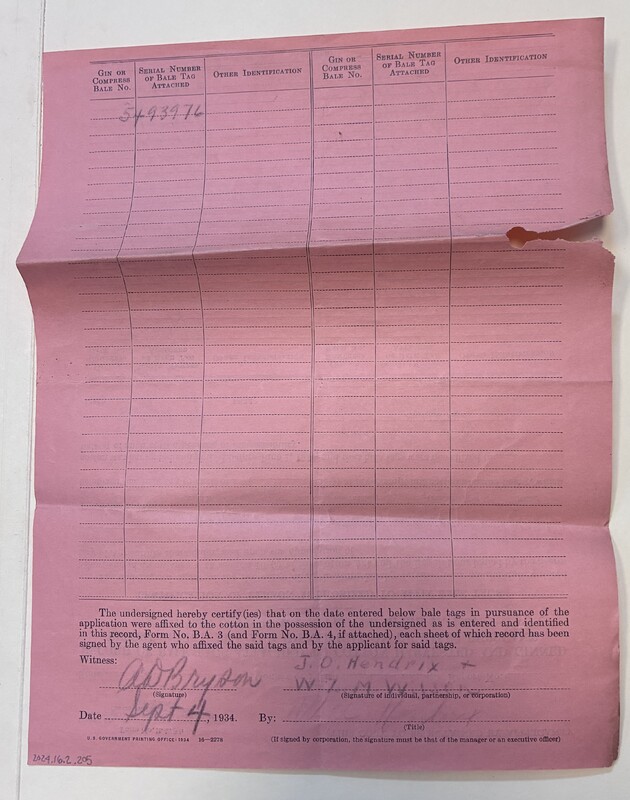 Gin or Compress Bale No.
Serial Number of Bale Tag Attached
Other Identification
Gin or Compress Bale No.
Serial Number of Bale Tag Attached
Other Identification
5493976
The undersigned hereby certify(ies) that on the date entered below bale tags in pursuance of the
application were affixed to the cotton in the possession of the undersigned as is entered and identified
in this record, Form No. B.A. 3 (and Form No. B.A. 4, if attached), each sheet of which record has been
signed by the agent who affixed the said tags and by the applicant for said tags.
Witness:
J. O. Hendrix +
A D Bryson
W. Y. M
(Signature)
(Signature of individual, partnership, or corporation)
Date Sept 4, 1934. By:
(Title)
U.S. GOVERNMENT PRINTING OFFICE: 1934 16—2276
(If signed by corporation, the signature must be that of the manager or an executive officer)
2024.16.2.205